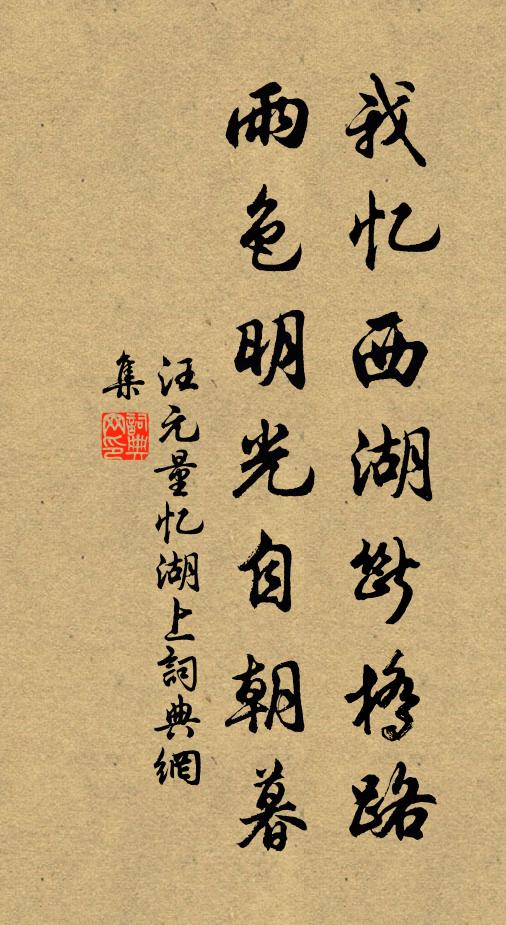 我忆西湖斷橋路
雨色明光自朝暮
汪元量忆湖上詞典網
集
詞典
网印